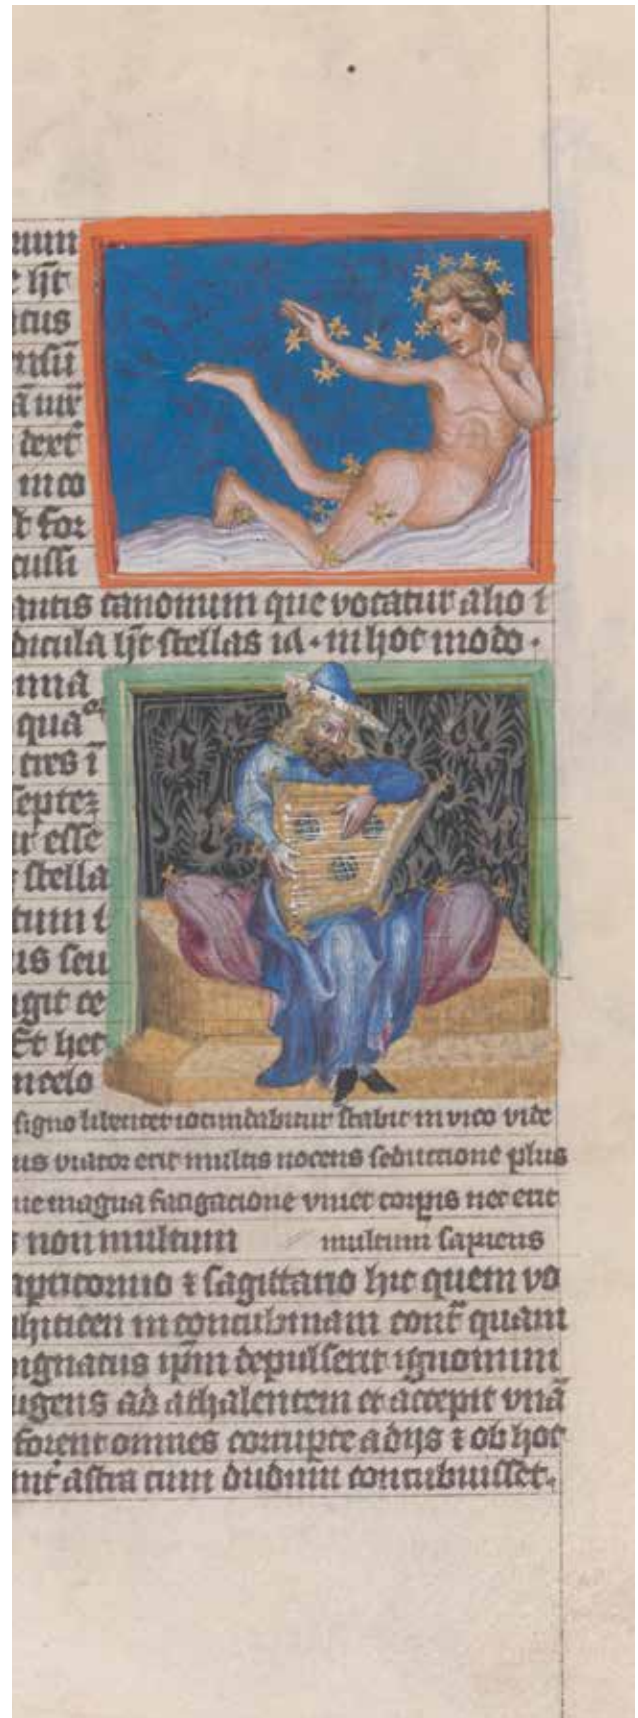 tus
dext
in co
for
cussi
antis canonum que vocatur alio i
dicula hñt stellas ia · in hoc modo ·
nua
qua
tres ī
septeз
ur esse
stella
tum i
us seu
igit ce
Et hec
n celo
signo libenter iocundabitur stabit in vico vide
us viator erit multis nocens seductione plus
ue magna fatigacione vivet corpus nec erit
s non multum multum sapiens
apricornio ⁊ sagittario hic quem vo
in concubinam quam
ipm depulserit ignomini
ugens ad athalentem et accepit unā
forent omnes corrupte a diis ⁊ ob hoc
astra cum dudum concubuisset.